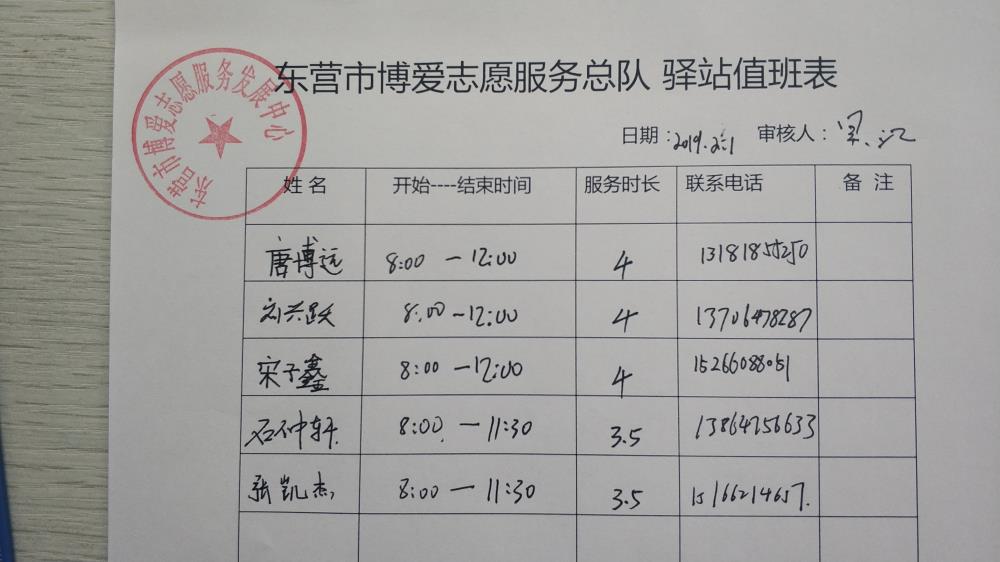 东营市博爱志愿服务总队 驿站值班表
东营市博爱志愿服务发展中心
日期：2019.2.1 审核人：
姓名 开始----结束时间 服务时长 联系电话 备 注
唐博远 8:00 — 12:00 4 13181855250
刘兴跃 8:00 — 12:00 4 13706478287
宋子鑫 8:00 — 12:00 4 15266088051
石中轩 8:00 — 11:30 3.5 13864756633
张凯杰 8:00 — 11:30 3.5 15166214657.